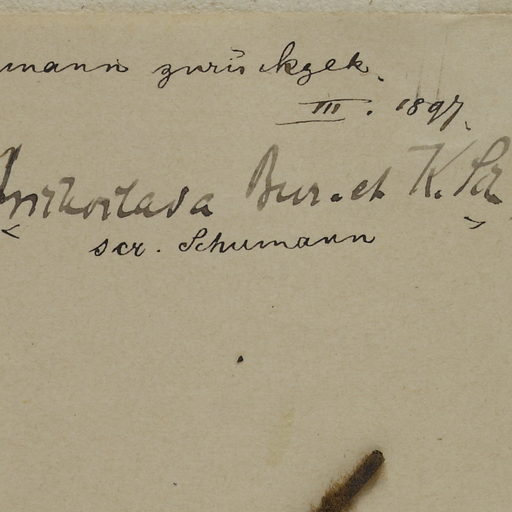 mann zurückgek.
III. 1897.
Bur. et K. Sch
scr. Schumann